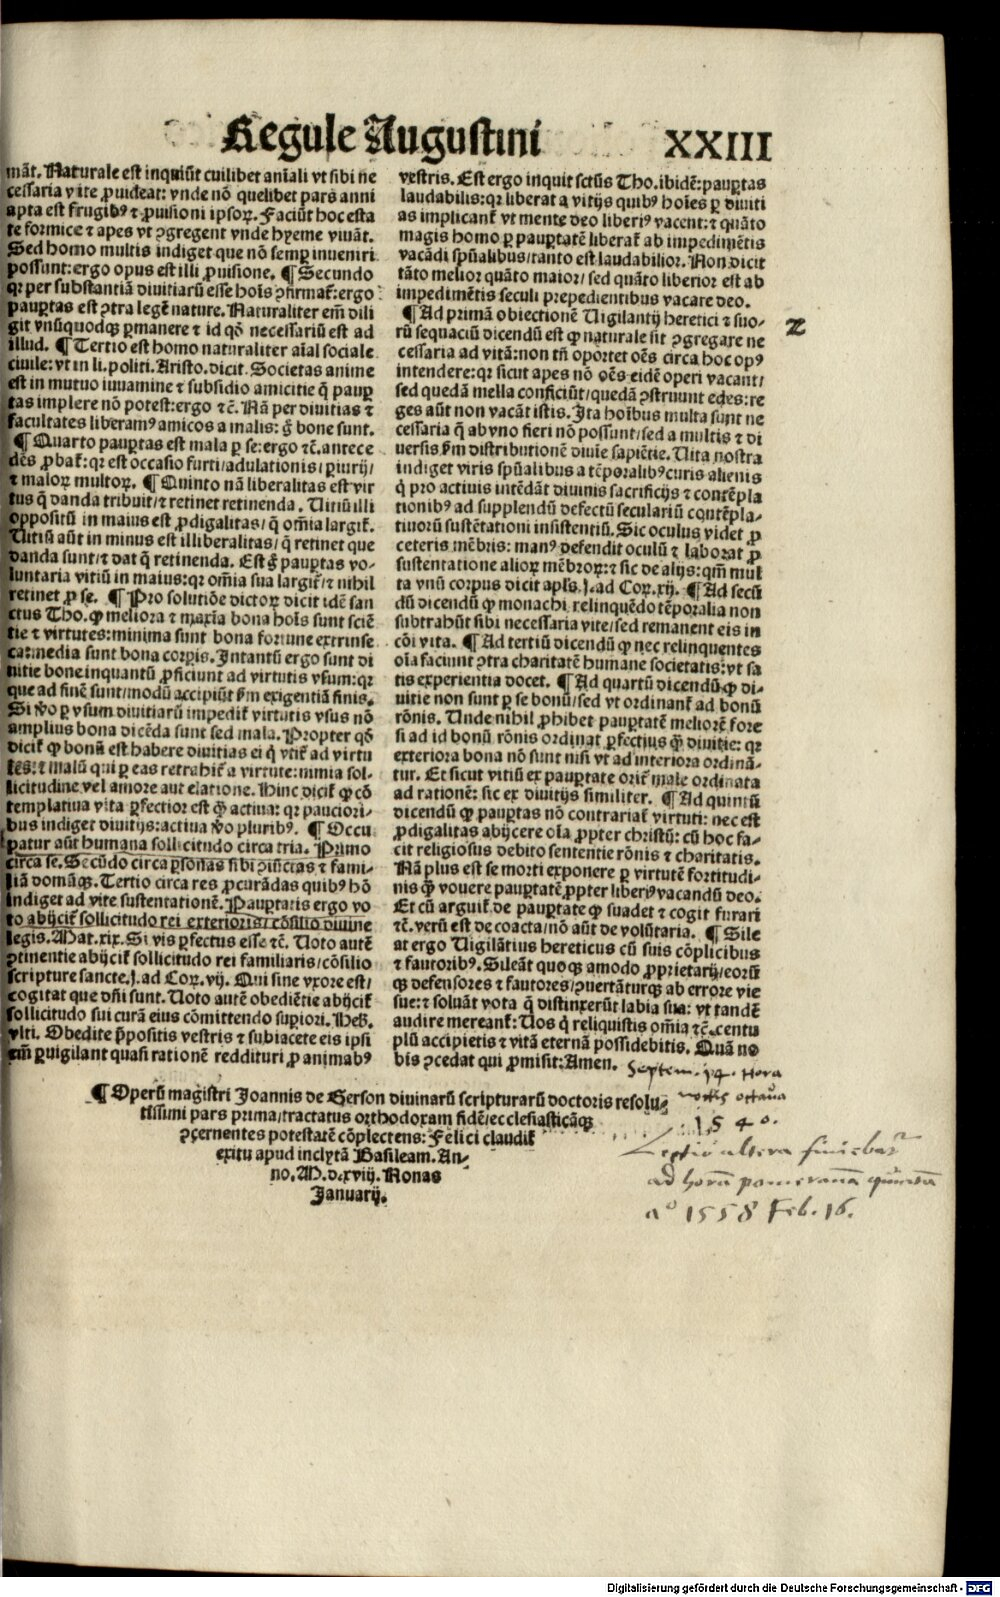 Regule Augustini XXIII
mãt. Naturale est inquiũt cuilibet aĩali vt sibi ne
cessaria vite ꝓuideat: vnde nõ quelibet pars anni
apta est frugibꝰ ⁊ ꝓuisioni ipsoꝝ. Faciũt hoc esta
te formice ⁊ apes vt ꝯgregent vnde hyeme viuãt.
Sed homo multis indiget que nõ semꝑ inueniri
possunt: ergo opus est illi ꝓuisione. ¶ Secundo
qꝛ per substantiã diuitiarũ esse hoĩs ꝯfirmat̃: ergo
pauꝑtas est ꝯtra legẽ nature. Naturaliter em̃ dili
git vnũquodqꝫ ꝑmanere ⁊ id qð necessariũ est ad
illud. ¶ Tertio est homo naturaliter aĩal sociale
ciuile: vt in li. politi. Aristo. dicit. Societas anime
est in mutuo iuuamine ⁊ subsidio amicitie q̃ pauꝑ
tas implere nõ potest: ergo ⁊c̃. Nã per diuitias ⁊
facultates liberamꝰ amicos a malis: g̃ bone sunt.
¶ Quarto pauꝑtas est mala ꝑ se: ergo ⁊c̃. antece
dẽs ꝓbat̃: qꝛ est occasio furti/ adulationis/ ꝑiurij/
⁊ maloꝝ multoꝝ. ¶ Quinto nã liberalitas est vir
tus q̃ danda tribuit/ ⁊ retinet retinenda. Uitiũ illi
oppositũ in maius est ꝓdigalitas/ q̃ om̃ia largit̃.
Uitiũ aũt in minus est illiberalitas/ q̃ retinet que
danda sunt/ ⁊ dat q̃ retinenda. Est g̃ pauꝑtas vo-
luntaria vitiũ in maius: qꝛ om̃ia sua largit̃/ ⁊ nihil
retinet ꝓ se. ¶ Pro solutiõe dictoꝝ dicit idẽ san
ctus Tho. ꝙ meliora ⁊ maxĩa bona hoĩs sunt sciẽ
tie ⁊ virtutes: minima sunt bona fortune extrinse
ca: media sunt bona corꝑis. Intantũ ergo sunt di
uitie bone inquantũ ꝓficiunt ad virtutis vsum: qꝛ
que ad finẽ sunt/ modũ accipiũt ẜm exigentiã finis.
Si v̾o ꝑ vsum diuitiarũ impedit̃ virtutis vsus nõ
amplius bona dicẽda sunt sed mala. Propter qð
dicit̃ ꝙ bonũ est habere diuitias ei q̃ vtit̃ ad virtu
tẽs: ⁊ malũ qui ꝑ eas retrahit̃ a virtute: nimia sol-
licitudine vel amore aut elatione. Hinc dicit̃ ꝙ cõ
templatiua vita ꝑfectior est q̃ȝ actiua: qꝛ pauciori-
bus indiget diuitijs: actiua v̾o pluribꝰ. ¶ Occu
patur aũt humana sollicitudo circa tria. Primo
circa se. Secũdo circa ꝑsonas sibi ꝯiũctas ⁊ fami-
liã domũqꝫ. Tertio circa res ꝓcurãdas quibꝰ hõ
indiget ad vite sustentationẽ. Pauꝑtatis ergo vo
to abijcit̃ sollicitudo rei exterioris/ cõsilio diuine
legis. Mat. xix. Si vis ꝑfectus esse ⁊c̃. Uoto autẽ
ꝯtinentie abijcit̃ sollicitudo rei familiaris/ cõsilio
scripture sancte. j. ad Coꝝ. vij. Qui sine vxore est/
cogitat que dñi sunt. Uoto autẽ obediẽtie abijcit̃
sollicitudo sui curã eius cõmittendo suꝑiori. Heb.
vlti. Obedite p̃positis vestris ⁊ subiacete eis ipsi
em̃ ꝑuigilant quasi rationẽ reddituri ꝓ animabꝰ
vestris. Est ergo inquit sctũs Tho. ibidẽ: pauꝑtas
laudabilis: qꝛ liberat a vitijs quibꝰ hoĩes ꝑ diuiti
as implicant̃ vt mente deo liberiꝰ vacent: ⁊ quãto
magis homo ꝑ pauꝑtatẽ liberat̃ ab impedimẽtis
vacãdi sꝑũalibus/ tanto est laudabilior. Non dicit
tãto melior quãto maior/ sed quãto liberior est ab
impedimẽtis seculi prepedientibus vacare deo.
¶ Ad primã obiectionẽ Uigilantij heretici ⁊ suo-
rũ sequaciũ dicendũ est ꝙ naturale sit ꝯgregare ne
cessaria ad vitã: non tñ oportet oẽs circa hoc opꝰ
intendere: qꝛ sicut apes nõ oẽs eidẽ operi vacant/
sed quedã mella conficiũt/ quedã ꝯstruunt edes: re
ges aũt non vacãt istis. Ita hoĩbus multa sunt ne
cessaria q̃ ab vno fieri nõ possunt/ sed a multis ⁊ di
uersis ẜm distributionẽ diuie sapiẽtie. Uita nostra
indiget viris sꝑũalibus a tẽporalibꝰ curis alienis
q̃ pro actiuis intẽdãt diuinis sacrificijs ⁊ contẽpla
tionibꝰ ad supplendũ defectũ seculariũ contẽpla-
tiuorũ sustẽtationi insistentiũ. Sic oculus videt ꝓ
ceteris mẽbris: manꝰ defendit oculũ ⁊ laborat ꝓ
sustentatione alioꝝ mẽbroꝝ: ⁊ sic de alijs: qm̃ mul
ta vnũ corpus dicit apl̃s. j. ad Coꝝ. xij. ¶ Ad secũ
dũ dicendũ ꝙ monachi relinquẽdo tẽporalia non
subtrahũt sibi necessaria vite/ sed remanent eis in
cõi vita. ¶ Ad tertiũ dicendũ ꝙ nec relinquentes
oĩa faciunt ꝯtra charitatẽ humane societatis: vt sa
tis experientia docet. ¶ Ad quartũ dicendũ ꝙ di-
uitie non sunt ꝑ se bonũ/ sed vt ordinant̃ ad bonũ
rõnis. Unde nihil ꝓhibet pauꝑtatẽ meliorẽ fore
si ad id bonũ rõnis ordinat̃ ꝑfectius q̃ȝ diuitie: qꝛ
exteriora bona nõ sunt nisi vt ad interiora ordinã-
tur. Et sicut vitiũ ex pauꝑtate orit̃ male ordinata
ad rationẽ: sic ex diuitijs similiter. ¶ Ad quintũ
dicendũ ꝙ pauꝑtas nõ contrariat̃ virtuti: nec est
ꝓdigalitas abijcere oĩa ꝓpter christũ: cũ hoc fa-
cit religiosus debito sententie rõnis ⁊ charitatis.
Nã plus est se morti exponere ꝑ virtutẽ fortitudi-
nis q̃ȝ vouere pauꝑtatẽ ꝓpter liberiꝰ vacandũ deo.
Et cũ arguit̃ de pauꝑtate ꝙ suadet ⁊ cogit furari
⁊c̃. verũ est de coacta/ nõ aũt de volũtaria. ¶ Sile
at ergo Uigilãtius hereticus cũ suis cõplicibus
⁊ fautoribꝰ. Sileãt quoqꝫ amodo ꝓprietarij/ eorũ
qꝫ defensores ⁊ fautores/ ꝯuertãturqꝫ ab errore vie
sue: ⁊ soluãt vota q̃ distinxerũt labia sua: vt tandẽ
audire mereant̃: Uos q̃ reliquistis om̃ia ⁊c̃. centu
plũ accipietis ⁊ vitã eternã possidebitis. Quã no
bis ꝯcedat qui ꝓmisit: Amen.
2
Septem. 14. Hora
noctis octaua
1540.
¶ Operũ magistri Joannis de Gerson diuinarũ scripturarũ doctoris resolu-
tissimi pars prima/ tractatus orthodoxam fidẽ/ ecclesiasticãqꝫ
ꝯcernentes potestatẽ cõplectens: Felici claudit̃
exitu apud inclytã Basileam. An-
no. M. d. xviij. Nonas
Januarij.
Lectio altera finiebat̃
ad horã pomeranã quintã
aº 1558 Feb. 16.
Digitalisierung gefördert durch die Deutsche Forschungsgemeinschaft - DFG